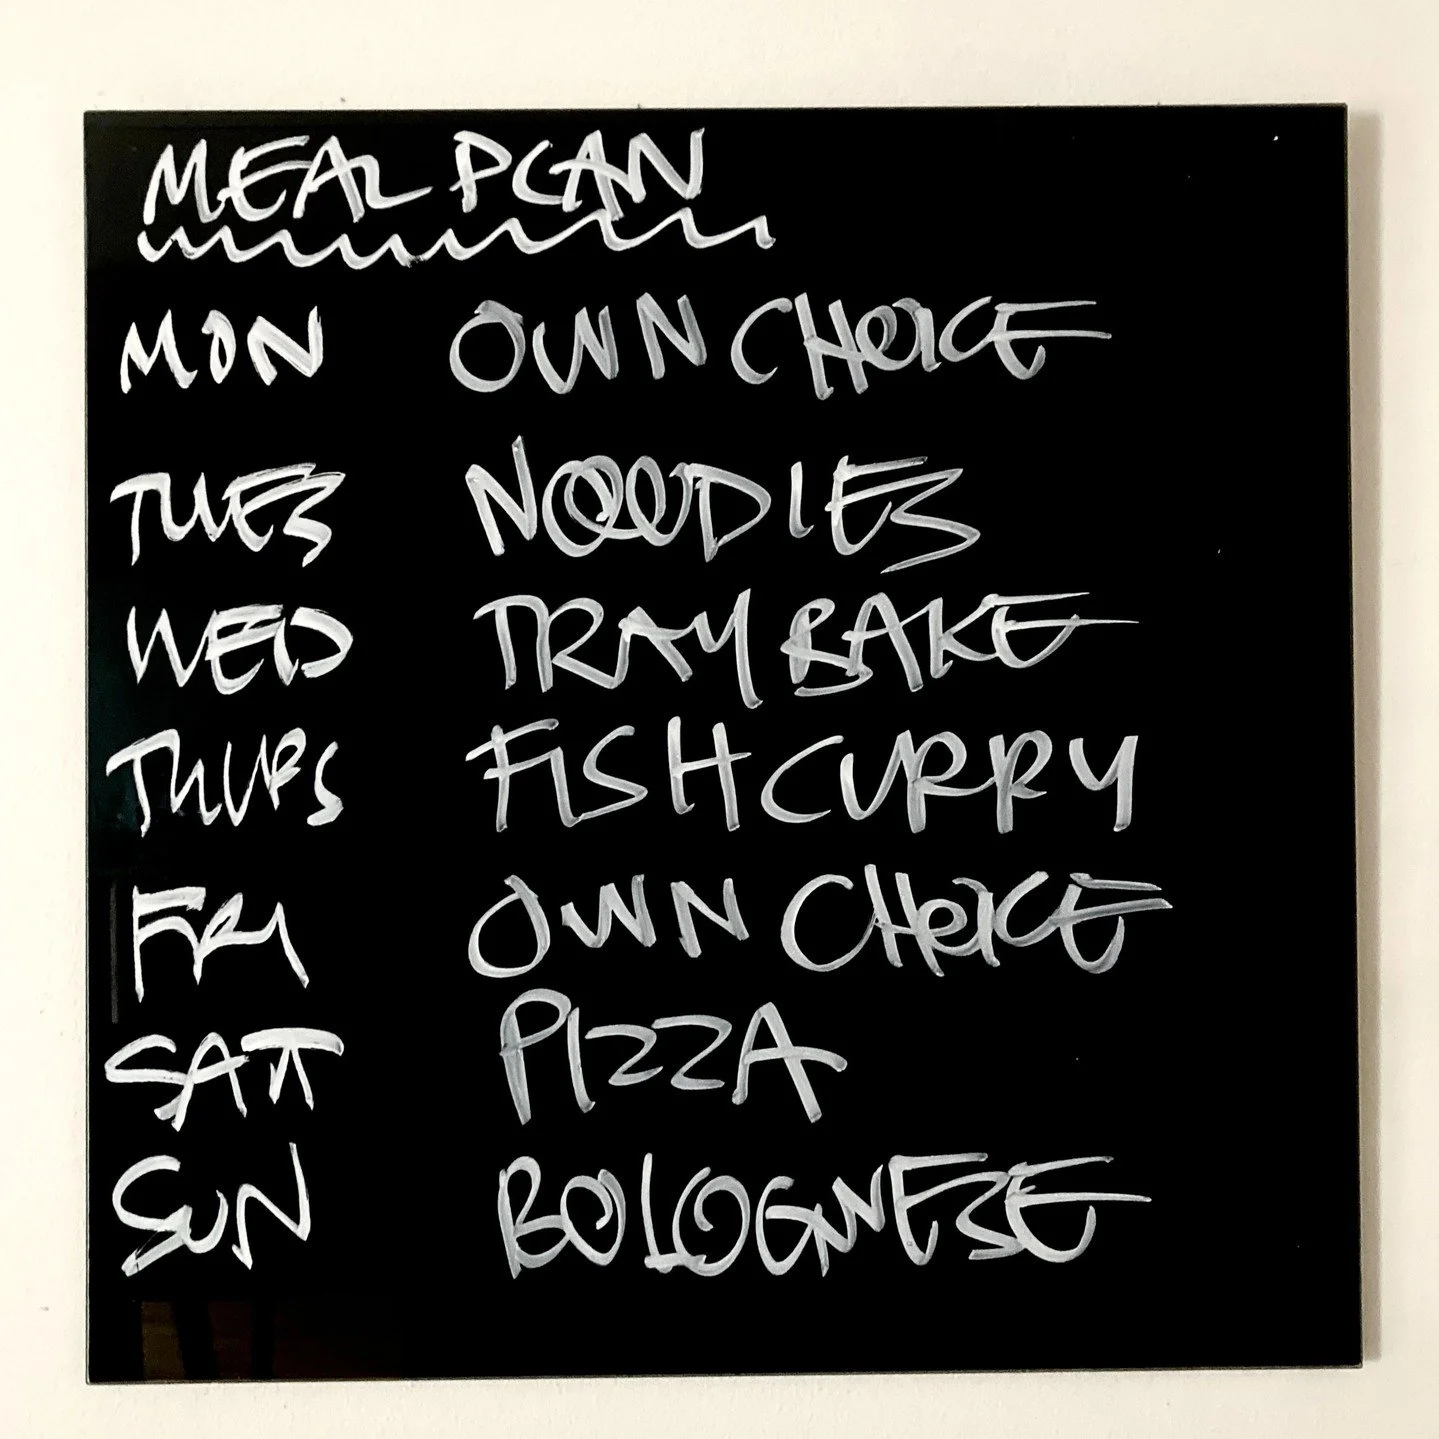 MEAL PLAN
MON OWN CHOICE
TUES NOODLES
WED TRAY BAKE
THURS FISH CURRY
FRI OWN CHOICE
SAT PIZZA
SUN BOLOGNESE